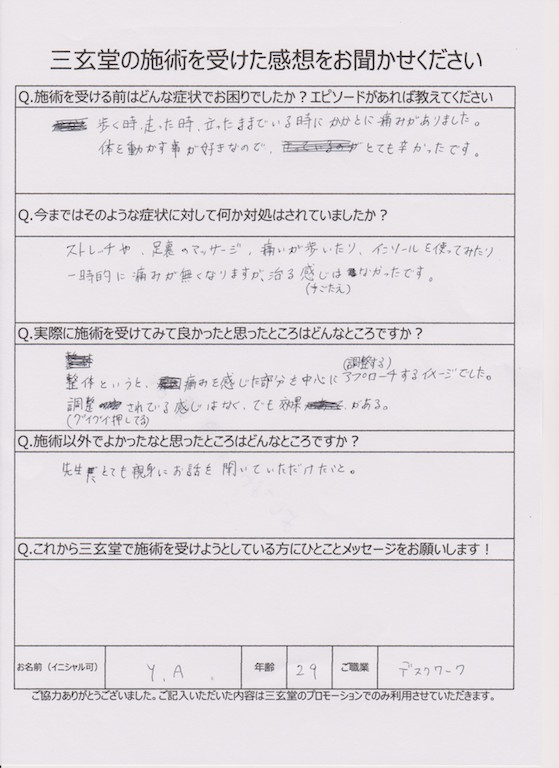 三玄堂の施術を受けた感想をお聞かせください
Q.施術を受ける前はどんな症状でお困りでしたか？エピソードがあれば教えてください
歩く時、走った時、立ったままでいる時にかかとに痛みがありました。
体を動かす事が好きなので、とても辛かったです。
Q.今まではそのような症状に対して何か対処はされていましたか？
ストレッチや、足裏のマッサージ、痛いが歩いたり、インソールを使ってみたり
一時的に痛みが無くなりますが、治る感じはなかったです。
(手ごたえ)
Q.実際に施術を受けてみて良かったと思ったところはどんなところですか？
(調整する)
整体というと、痛みを感じた部分を中心にアプローチするイメージでした。
調整されている感じはなく、でも効果がある。
(グイグイ押してる)
Q.施術以外でよかったなと思ったところはどんなところですか？
先生がとても親身にお話を聞いていただけたこと。
Q.これから三玄堂で施術を受けようとしている方にひとことメッセージをお願いします！
お名前（イニシャル可） Y.A. 年齢 29 ご職業 デスクワーク
ご協力ありがとうございました。ご記入いただいた内容は三玄堂のプロモーションでのみ利用させていただきます。